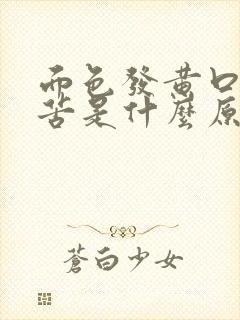 面色發黃口
苦是什麼原
蒼白少女